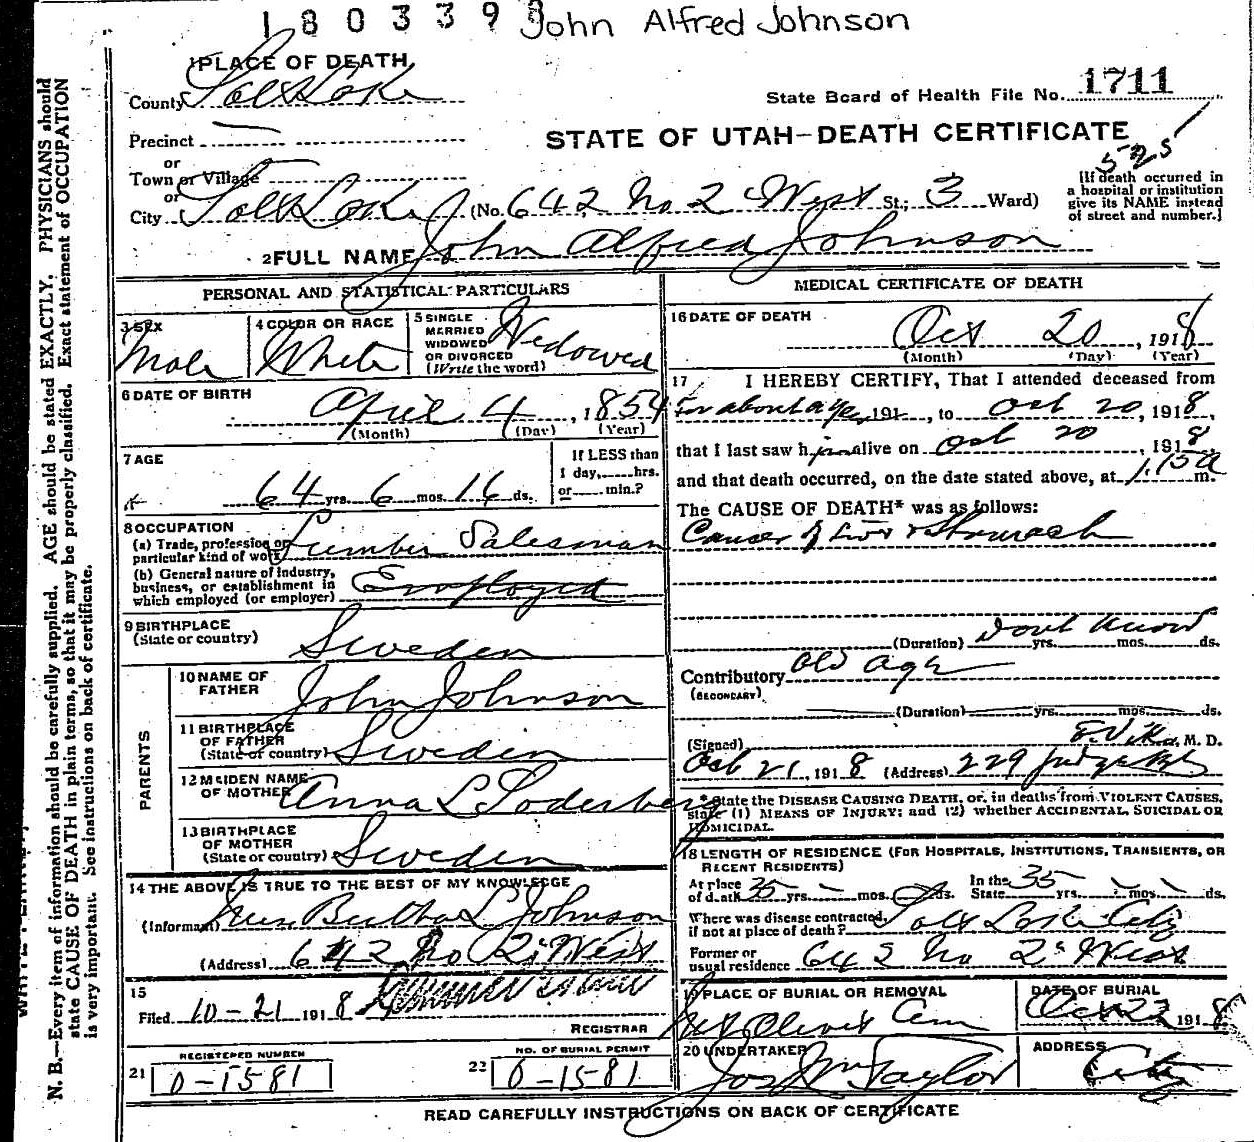 180339 John Alfred Johnson
1 PLACE OF DEATH
County Salt Lake
State Board of Health File No. 1711
Precinct
STATE OF UTAH—DEATH CERTIFICATE
or
Town or Village
or
City Salt Lake (No. 642 No 2 West St.; 3 Ward)
[If death occurred in
a hospital or institution
give its NAME instead
of street and number.]
2 FULL NAME John Alfred Johnson
PERSONAL AND STATISTICAL PARTICULARS
3 SEX Male
4 COLOR OR RACE White
5 SINGLE
MARRIED
WIDOWED
OR DIVORCED
(Write the word) Widowed
6 DATE OF BIRTH
April 4, 1854
(Month) (Day) (Year)
7 AGE
64 yrs. 6 mos. 16 ds.
If LESS than
1 day, hrs.
or min.?
8 OCCUPATION
(a) Trade, profession or
particular kind of work Lumber Salesman
(b) General nature of industry,
business, or establishment in
which employed (or employer) Employed
9 BIRTHPLACE
(State or country) Sweden
PARENTS
10 NAME OF
FATHER John Johnson
11 BIRTHPLACE
OF FATHER
(State or country) Sweden
12 MAIDEN NAME
OF MOTHER Anna L Soderberg
13 BIRTHPLACE
OF MOTHER
(State or country) Sweden
14 THE ABOVE IS TRUE TO THE BEST OF MY KNOWLEDGE
(Informant) Bertha L Johnson
(Address) 642 No 2 West
15
Filed 10-21 1918
REGISTRAR
REGISTERED NUMBER
21 0-1581
NO. OF BURIAL PERMIT
22 0-1581
MEDICAL CERTIFICATE OF DEATH
16 DATE OF DEATH
Oct 20, 1918
(Month) (Day) (Year)
17 I HEREBY CERTIFY, That I attended deceased from
for about a 191, to Oct 20, 1918,
that I last saw him alive on Oct 20, 1918,
and that death occurred, on the date stated above, at 1.15 a m.
The CAUSE OF DEATH* was as follows:
Cancer of Liver & Stomach
(Duration) Dont Know yrs. mos. ds.
Contributory Old age
(SECONDARY)
(Duration) yrs. mos. ds.
(Signed) M. D.
Oct 21, 1918 (Address) 229 Judge
* State the DISEASE CAUSING DEATH, or, in deaths from VIOLENT CAUSES,
state (1) MEANS OF INJURY; and (2) whether ACCIDENTAL, SUICIDAL OR
HOMICIDAL.
18 LENGTH OF RESIDENCE (FOR HOSPITALS, INSTITUTIONS, TRANSIENTS, OR
RECENT RESIDENTS)
At place
of death 35 yrs. mos. ds.
In the
State 35 yrs. mos. ds.
Where was disease contracted,
if not at place of death? Salt Lake City
Former or
usual residence 642 No 2d West
19 PLACE OF BURIAL OR REMOVAL
Mt. Olivet Cem
DATE OF BURIAL
Oct 22 1918
20 UNDERTAKER
Jos Wm Taylor
ADDRESS
City
READ CAREFULLY INSTRUCTIONS ON BACK OF CERTIFICATE
N. B.—Every item of information should be carefully supplied. AGE should be stated EXACTLY. PHYSICIANS should
state CAUSE OF DEATH in plain terms, so that it may be properly classified. Exact statement of OCCUPATION
is very important. See instructions on back of certificate.